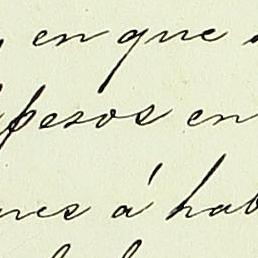 en que
pesos en
nes á hab